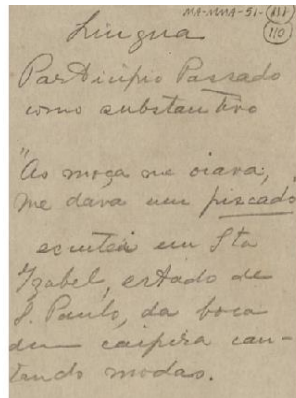 MA-MMA-51-111
110
Lingua
Participio Passado
como substantivo
"As moça me oiava,
me dava um piscado
escutei em Sta
Izabel, estado de
S. Paulo, da boca
dum caipira can-
tando modas.